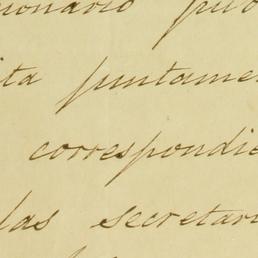 ionario pu
ita puntame
correspondie
las secretari